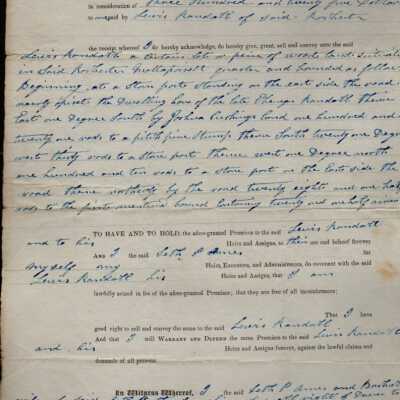 in consideration of Three Hundred and twenty five Dollars
to me paid by Lewis Randall of said Rochester
the receipt whereof I do hereby acknowledge, do hereby give, grant, sell and convey unto the said
Lewis Randall a certain lot or piece of wood land situate
in said Rochester Mattapoisett quarter and bounded as follows
Beginning at a stone post standing on the east side the road
nearly opisit the Dwelling house of the late Randall Thence
East one Degree South by Joshua Cushings land one hundred and
twenty one rods to a pitch pine Stump Thence South twenty one Degrees
west thirty rods to a stone post Thence west one Degree north
one hundred and ten rods to a stone post on the East side the
road Thence northerly by the road twenty eight and one half
rods to the first mentiond bound Containing twenty one acres
TO HAVE AND TO HOLD, the afore-granted Premises to the said Lewis Randall
and to his Heirs and Assigns, to their use and behoof forever;
And I the said Seth P Ames for
myself my Heirs, Executors, and Administrators, do covenant with the said
Lewis Randall his Heirs and Assigns, that I am
lawfully seized in fee of the afore-granted Premises; that they are free of all incumbrances;
That I have
good right to sell and convey the same to the said Lewis Randall
And that I will WARRANT AND DEFEND the same Premises to the said Lewis Randall
and his Heirs and Assigns forever, against the lawful claims and
demands of all persons.
In Witness Whereof, I the said Seth P Ames and
right of Dower to